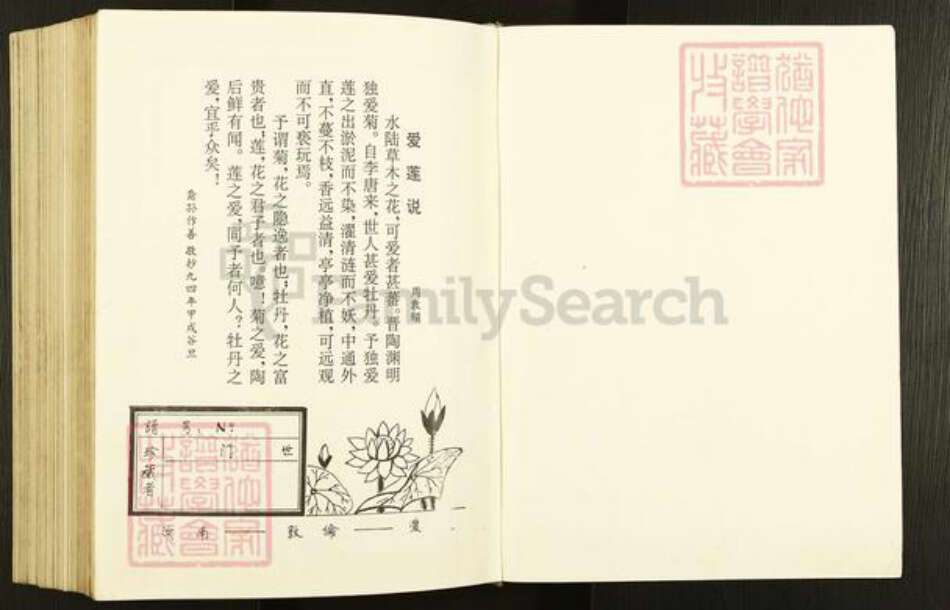 爱莲说
周敦颐
水陆草木之花，可爱者甚蕃。晋陶渊明
独爱菊。自李唐来，世人甚爱牡丹。予独爱
莲之出淤泥而不染，濯清涟而不妖，中通外
直，不蔓不枝，香远益清，亭亭净植，可远观
而不可亵玩焉。
予谓菊，花之隐逸者也；牡丹，花之富
贵者也；莲，花之君子者也。噫！菊之爱，陶
后鲜有闻。莲之爱，同予者何人？牡丹之
爱，宜乎众矣！
裔孙作善敬抄九四年甲戌谷旦
谱号：N:
门
珍藏者
南——敦伦——
FamilySearch
犹他家
谱学会
收藏
犹他家
谱学会
收藏